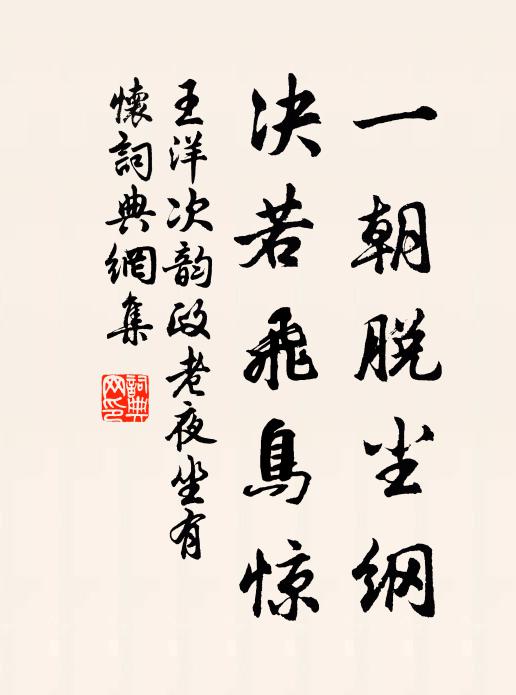 一朝脱尘纲
决若飞鸟惊
王洋次韵政老夜坐有
懷詞典網集
詞典
网印